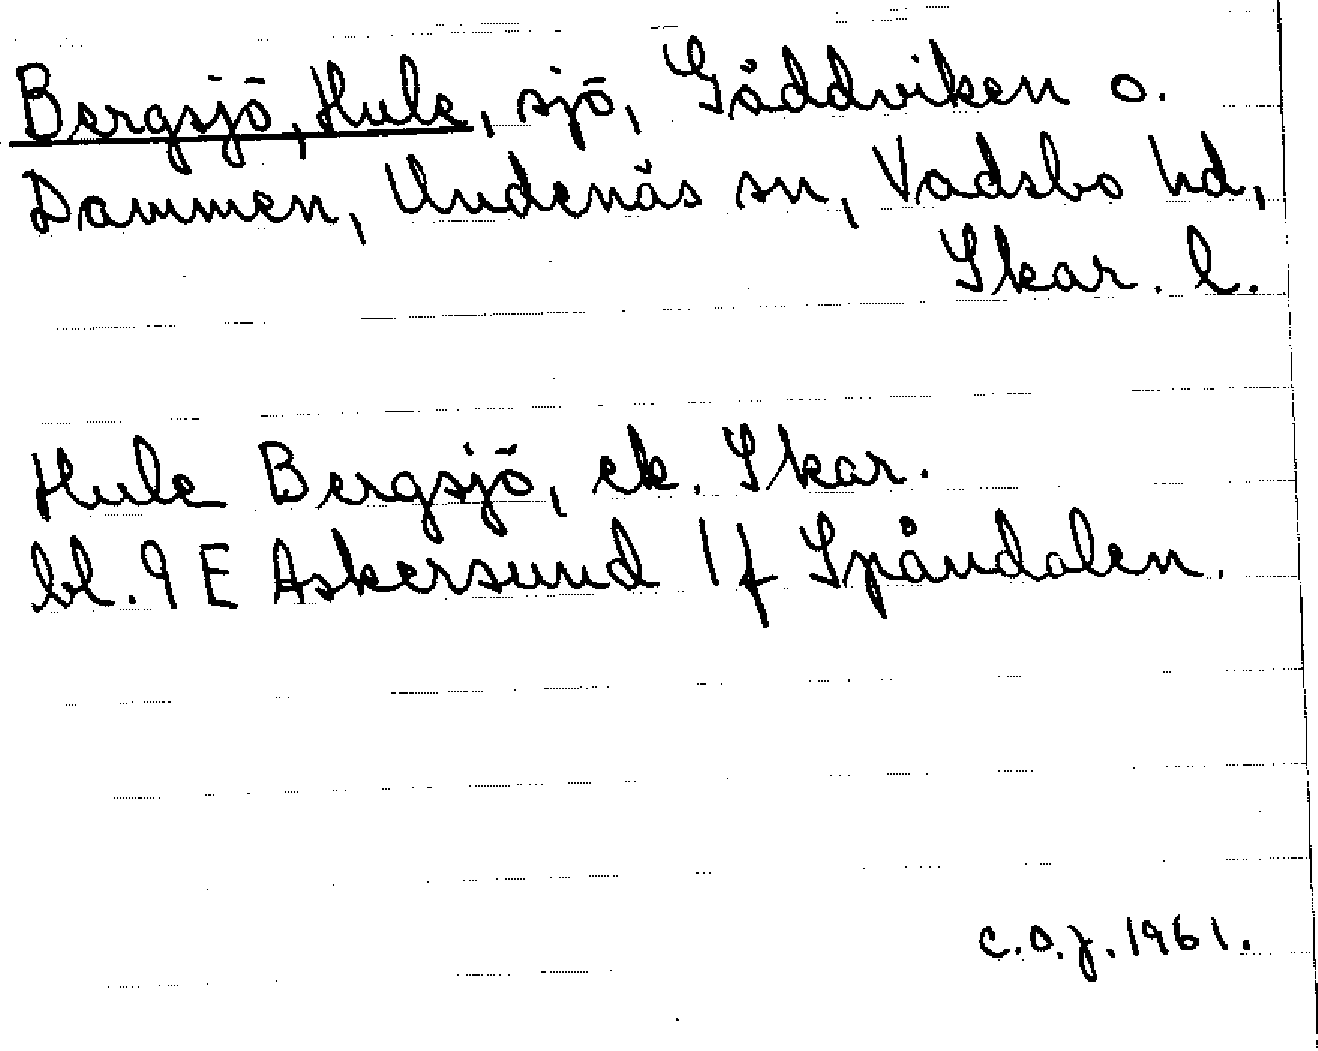 Bergsjö, Hule, sjö, Gäddviken o.
Dammen, Undenäs sn, Vadsbo hd,
Skar. l.
Hule Bergsjö, ek. Skar.
bl. 9 E Askersund 1 f Spåndalen.
C.O.J. 1961.